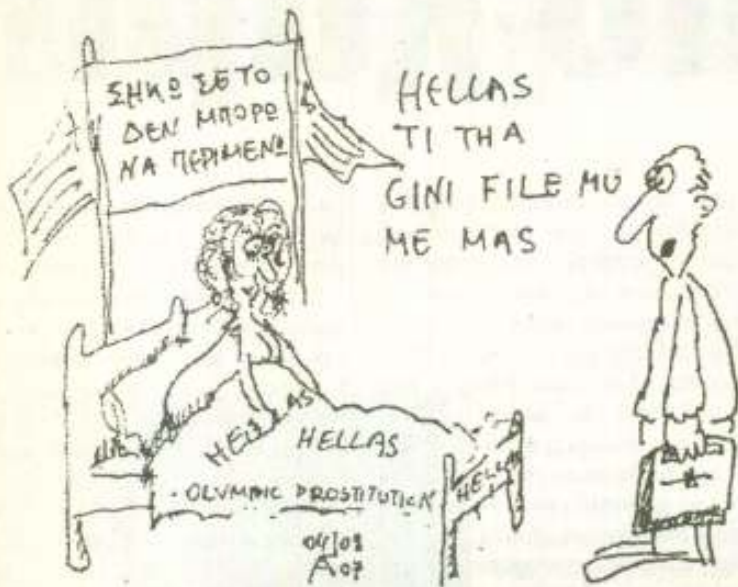 ΣΗΚΩ ΣΕ ΤΟ
ΔΕΝ ΜΠΟΡΩ
ΝΑ ΠΕΡΙΜΕΝΩ
HELLAS
TI THA
GINI FILE MU
ME MAS
HELLAS
HELLAS
HELLAS
OLYMPIC PROSTITUTION
A 07